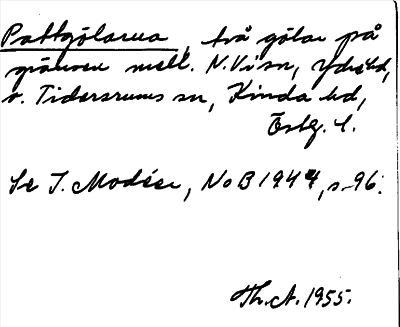 Pattgölarna, två gölar på
gränsen mell. N.Vi sn, Ydre hd,
o. Tidersrums sn, Kinda hd,
Östg. l.
Se I. Modéer, NoB 1944, s. 96.
Th.A. 1955.